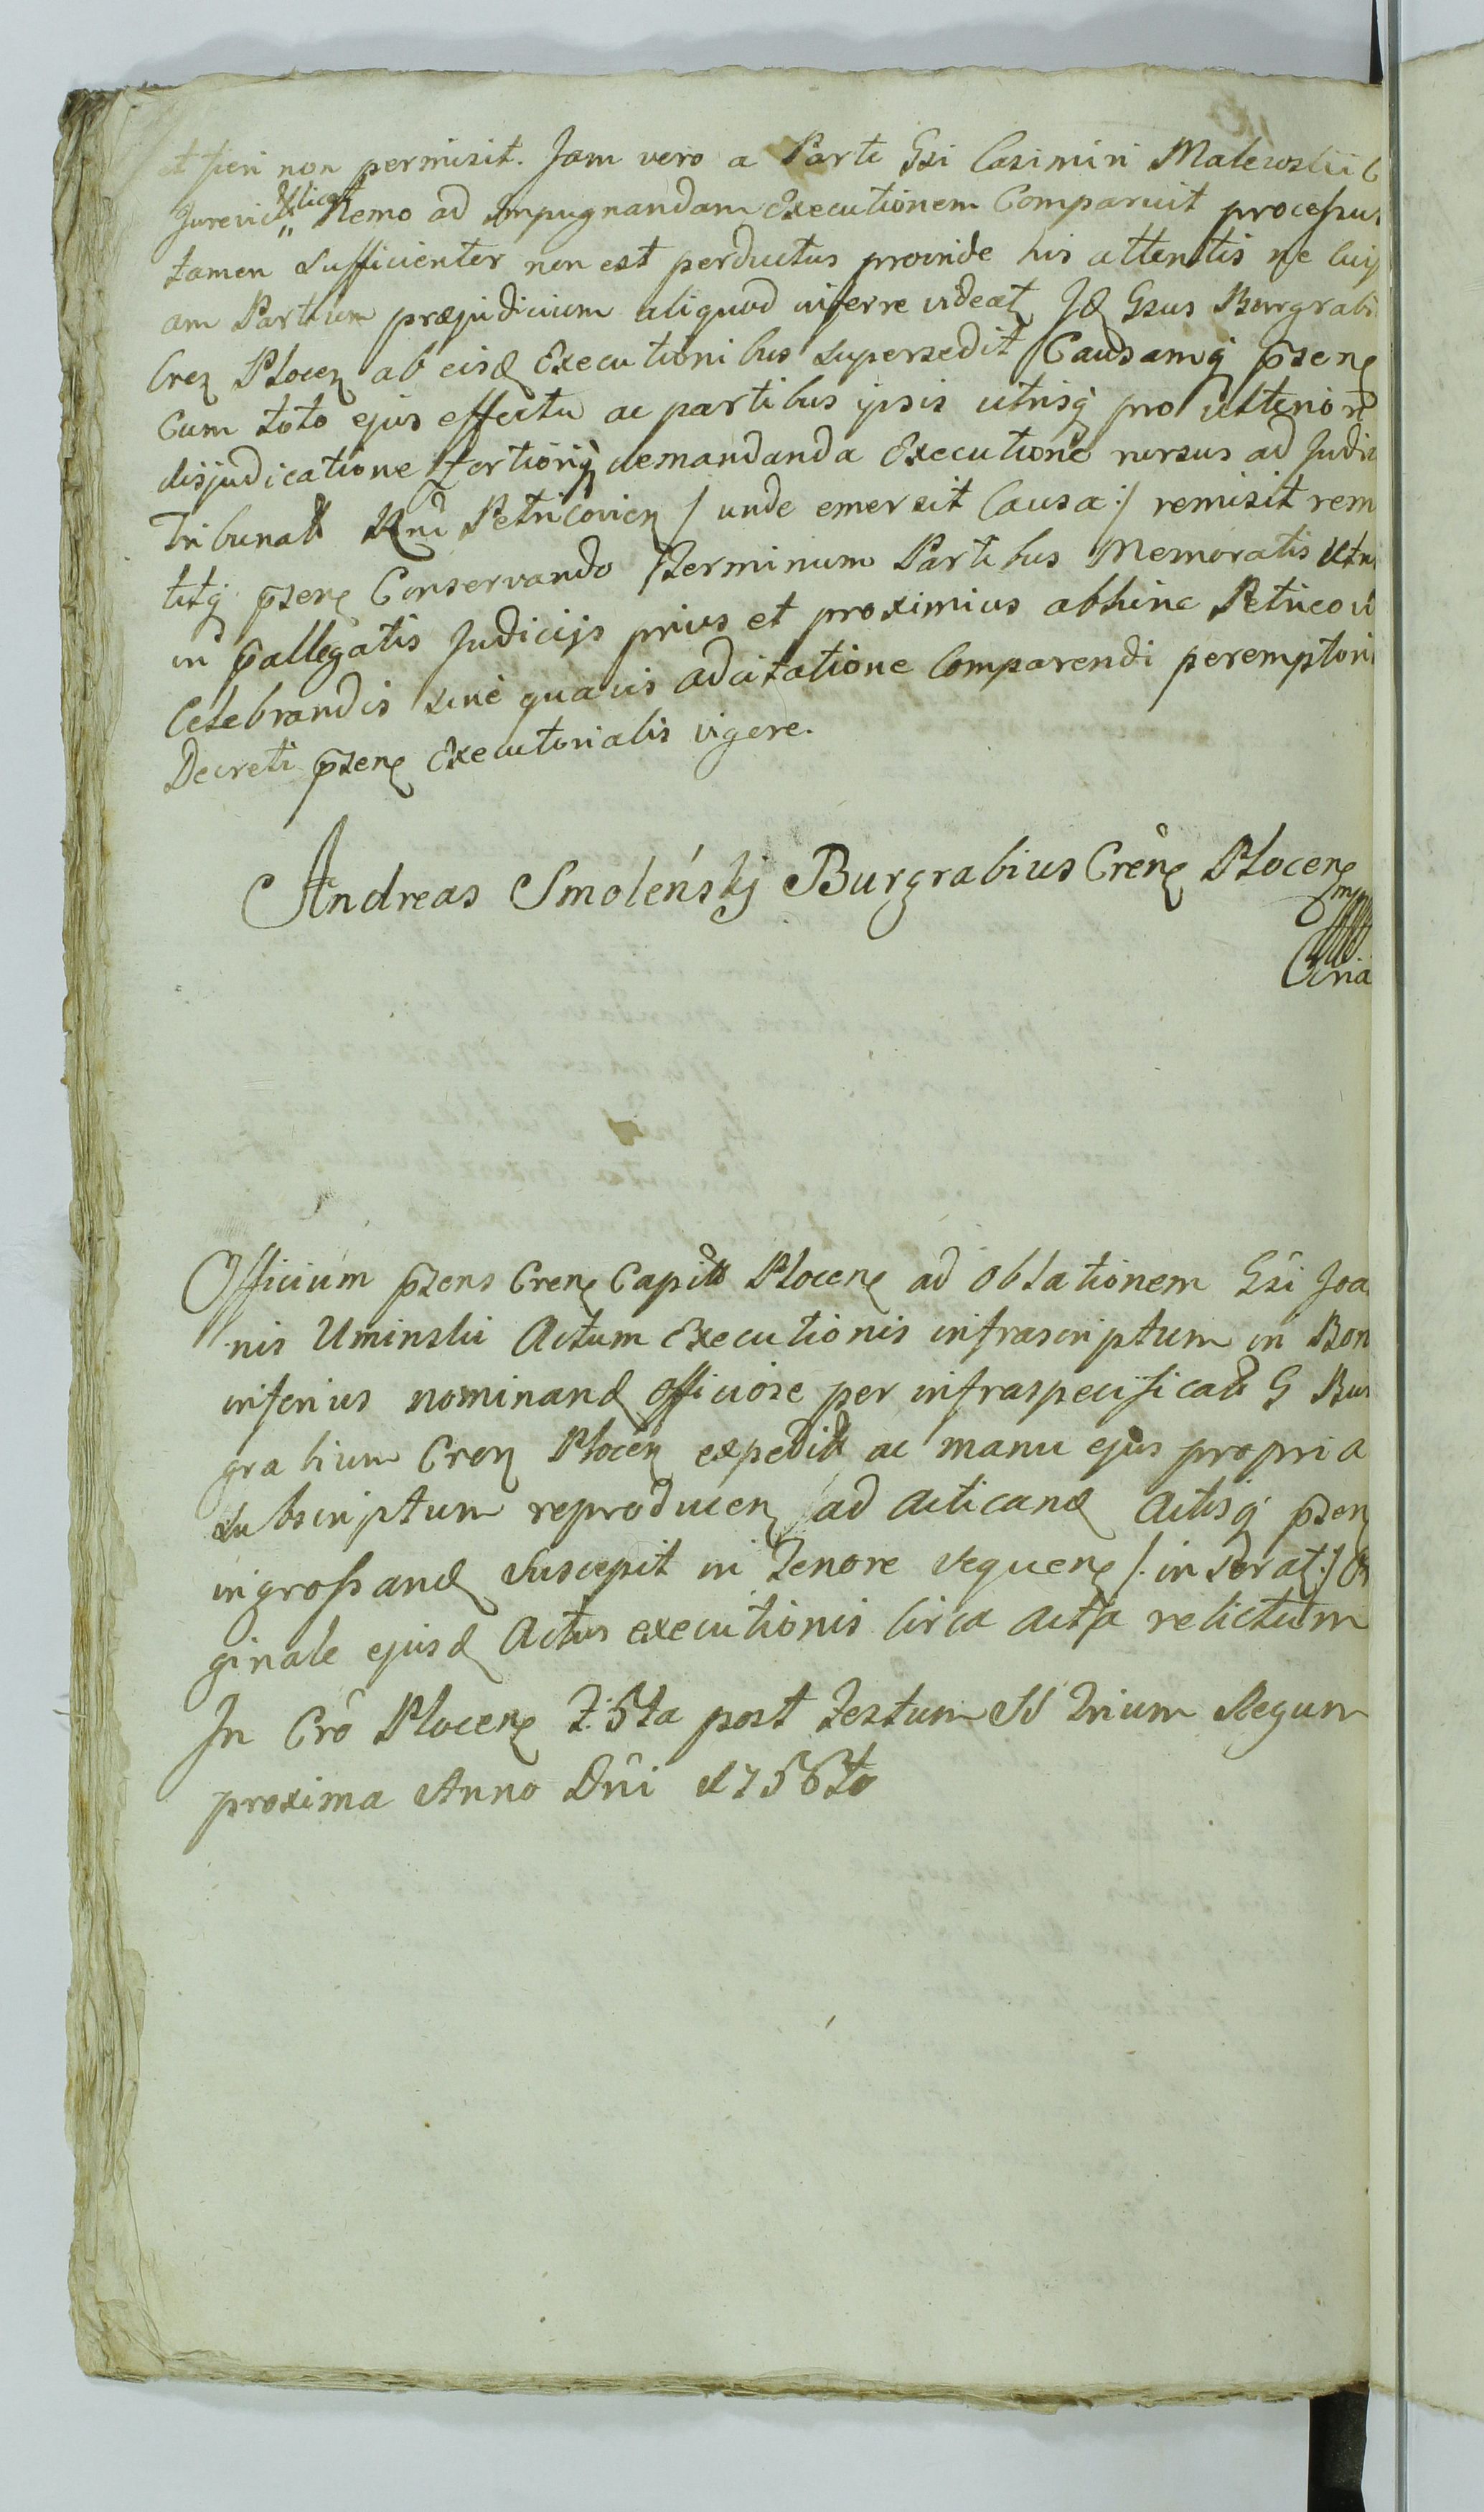 et fieri non permisit. Jam vero a Parte Gsi Casimiri Malewskii
Jurevict licet Nemo ad Impugnandam Executionem Comparuit processus
tamen sufficienter non est perductus proinde his attentis ne cuip
am Partium præjudicium aliquod inferre videat Jd Gsus Burgrabi
Cren Plocen ab eisd Executionibus supersedit Causamq pzene
Cum toto ejus effectu ac partibus ipsis utrisq pro ulteriori
disjudicatione fortioriq demandanda Executione rursus ad Judic
Tribunal Rni Petricovien /: unde emersit Causa :/ remisit rem
titq pzene Conservando Terminum Partibus Memoratis utri
in pallegatis Judicijs prius et proximius abhinc Petricovi
Celebrandis sine quavis adcitatione Comparendi peremptori
Decreti pzene Executorialis vigore.
Andreas Smoleńskj Burgrabius Crene Plocene
mp
Officium pzens Crene Capitl Plocene ad oblationem Gsi Joa
nis Uminski Actum Executionis infrascriptum in Bon
inferius nominand officiose per infraspecificat G Bur
grabium Cren Plocen expedit ac manu ejus propria
subscriptum reproducen ad acticand Actisq pzen
ingrossand suscepit in Tenore sequene /: inserat :/ Ori
ginale ejusd Actus executionis circa acta relictum
In Cro Plocene F. 5ta post Festum SS Trium Regum
proxima Anno Dni 1756to